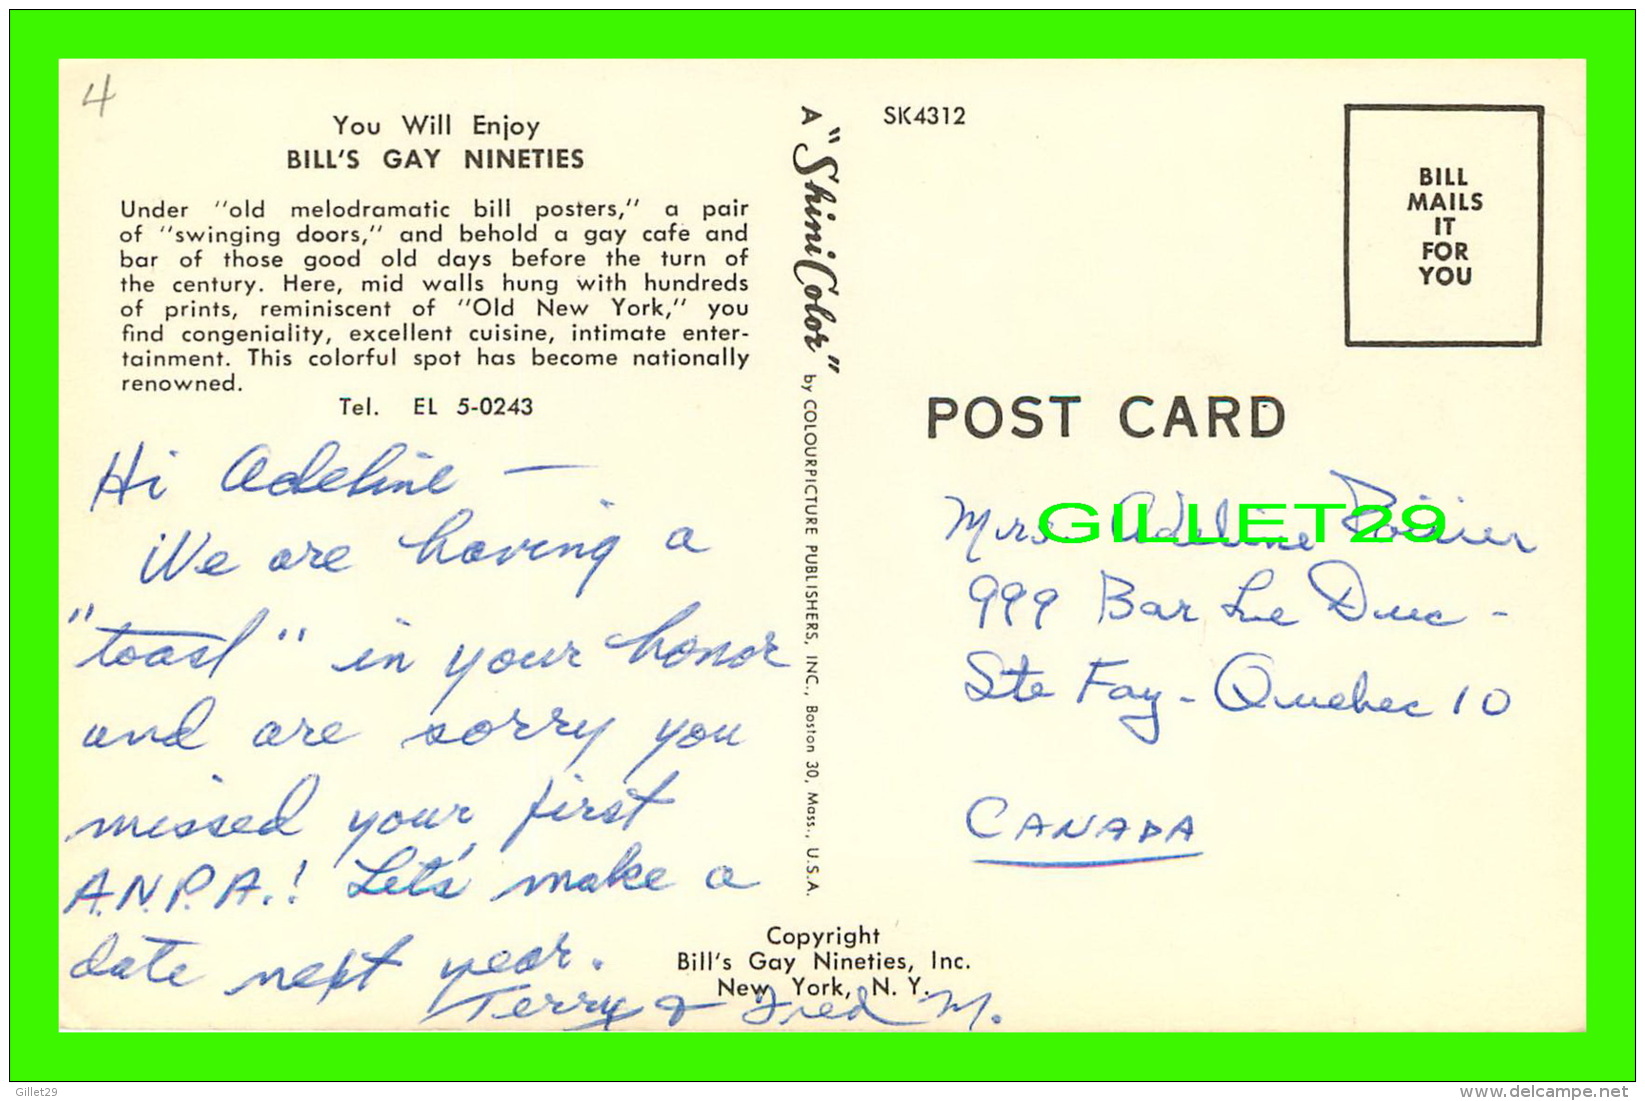 4
You Will Enjoy
BILL'S GAY NINETIES
Under "old melodramatic bill posters," a pair
of "swinging doors," and behold a gay cafe and
bar of those good old days before the turn of
the century. Here, mid walls hung with hundreds
of prints, reminiscent of "Old New York," you
find congeniality, excellent cuisine, intimate enter-
tainment. This colorful spot has become nationally
renowned.
Tel. EL 5-0243
Hi Adeline —
We are having a
"toast" in your honor
and are sorry you
missed your first
A.N.P.A.! Let's make a
date next year.
Terry & Fred M.
Copyright
Bill's Gay Nineties, Inc.
New York, N. Y.
A "ShiniColor" by COLOURPICTURE PUBLISHERS, INC., Boston 30, Mass., U.S.A.
SK4312
BILL
MAILS
IT
FOR
YOU
POST CARD
Mrs. Adeline Poirier
999 Bar Le Duc -
Ste Foy - Quebec 10
CANADA
GILLET29
Gillet29
www.delcampe.net